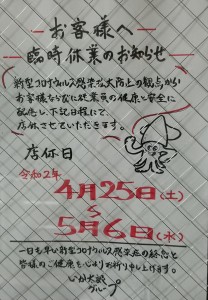 お客様へ
臨時休業のお知らせ
新型コロナウィルス感染拡大防止の観点から
お客様ならびに従業員の健康と安全に
配慮し、下記日程にて
店休させていただきます。
店休日
令和2年
4月25日(土)
～
5月6日(水)
一日も早い新型コロナウィルス感染症の終息と
皆様のご健康を心よりお祈り申し上げます。
いか太郎
グループ